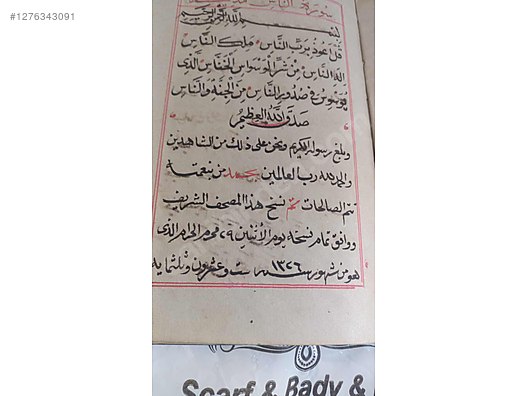 #1276343091
سورة الناس
بسم الله الرحمن الرحيم
قُلْ أَعُوذُ بِرَبِّ النَّاسِ مَلِكِ النَّاسِ
إِلَهِ النَّاسِ مِنْ شَرِّ الْوَسْوَاسِ الْخَنَّاسِ الَّذِي
يُوَسْوِسُ فِي صُدُورِ النَّاسِ مِنَ الْجِنَّةِ وَالنَّاسِ
صَدَقَ اللهُ الْعَظِيمُ
وبلغ رسوله الكريم ونحن على ذلك من الشاهدين
والحمد لله رب العالمين بحمد من بنعمته
تتم الصالحات تم نسخ هذا المصحف الشريف
ووافق تمام نسخه يوم الأثنين ٢٩ محرم الحرام الذي
هو من شهور سنة ١٣٢٦ ست وعشرون وثلثماية
Scarf & Bady &